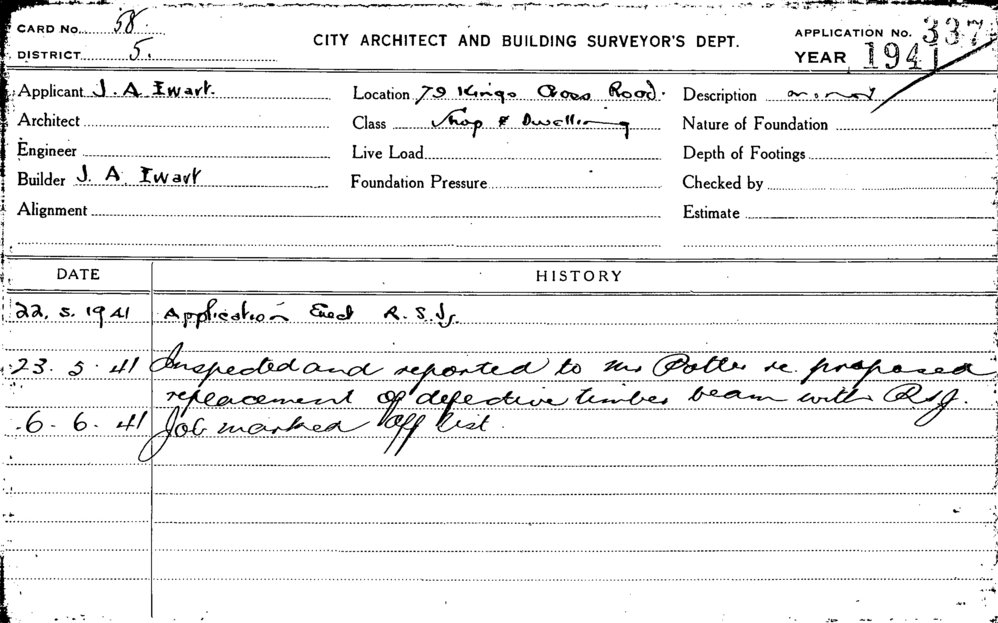 CARD No. 58
DISTRICT 5.
CITY ARCHITECT AND BUILDING SURVEYOR'S DEPT.
APPLICATION No. 337
YEAR 1941
Applicant J. A Ewart.
Location 79 Kings Cross Road.
Description
Architect
Class Shop & Dwelling
Nature of Foundation
Engineer
Live Load
Depth of Footings
Builder J. A. Ewart
Foundation Pressure
Checked by
Alignment
Estimate
DATE HISTORY
22. 5. 1941 Application Erect R. S. Js.
23. 5. 41 Inspected and reported to Mr Potter re. proposed
replacement of defective timber beam with RSJ.
6. 6. 41 Job marked off list.